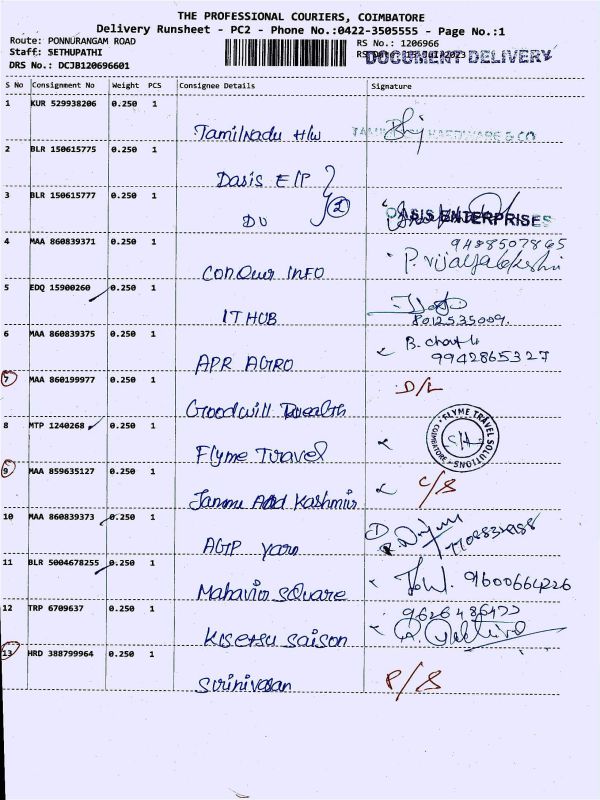 THE PROFESSIONAL COURIERS, COIMBATORE
Delivery Runsheet - PC2 - Phone No.:0422-3505555 - Page No.:1
Route: PONNURANGAM ROAD
RS No.: 1206966
Staff: SETHUPATHI
DOCUMENT DELIVERY
DRS No.: DCJB120696601
S No Consignment No Weight PCS Consignee Details Signature
1 KUR 529938206 0.250 1
Tamilnadu H/W
HARDWARE & CO
2 BLR 150615775 0.250 1
Oasis E/P
3 BLR 150615777 0.250 1
DO
2
OASIS ENTERPRISES
4 MAA 860839371 0.250 1
9488507865
ConQur INFO
P. Vijayalakshmi
5 EDQ 15900260 0.250 1
IT HUB
8012535009.
6 MAA 860839375 0.250 1
APR AGRO
9942865327
7 MAA 860199977 0.250 1
D/L
Goodwill Wealth
8 MTP 1240268 0.250 1
Flyme Travel
FLYME TRAVEL SOLUTIONS COIMBATORE
9 MAA 859635127 0.250 1
Jammu And Kashmir
C/S
10 MAA 860839373 0.250 1
AGP Yarn
11 BLR 5004678255 0.250 1
Mahavir Square
9600664226
12 TRP 6709637 0.250 1
Kisetsu Saison
13 HRD 388799964 0.250 1
Srinivasan
P/S